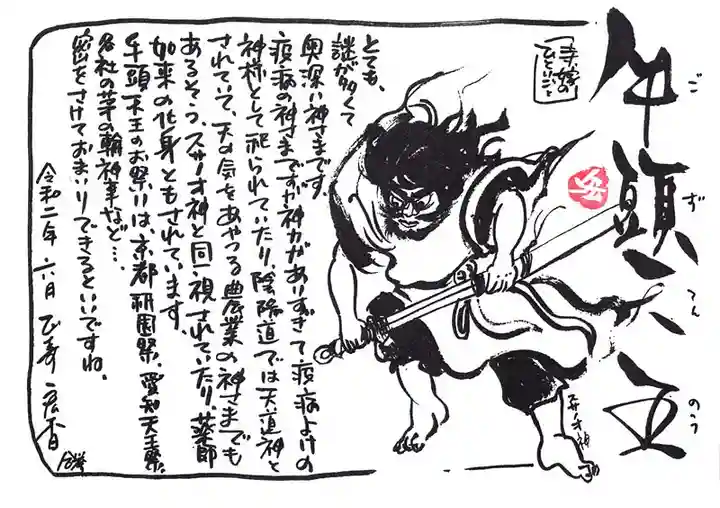 牛頭天王
ごずてんのう
とても、
謎が多くて
奥深い神さまです
疫病の神さまですが神力がありすぎて疫病よけの
神様として祀られていたり陰陽道では天道神と
されていて、天の気をあやつる農業の神さまでも
あるそう、スサノオ神と同一視されていたり、薬師
如来の化身ともされています。
牛頭天王のお祭りは、京都祇園祭、愛知天王祭、
各社の茅の輪神事など…
密をさけておまいりできるといいですね。
令和二年 六月